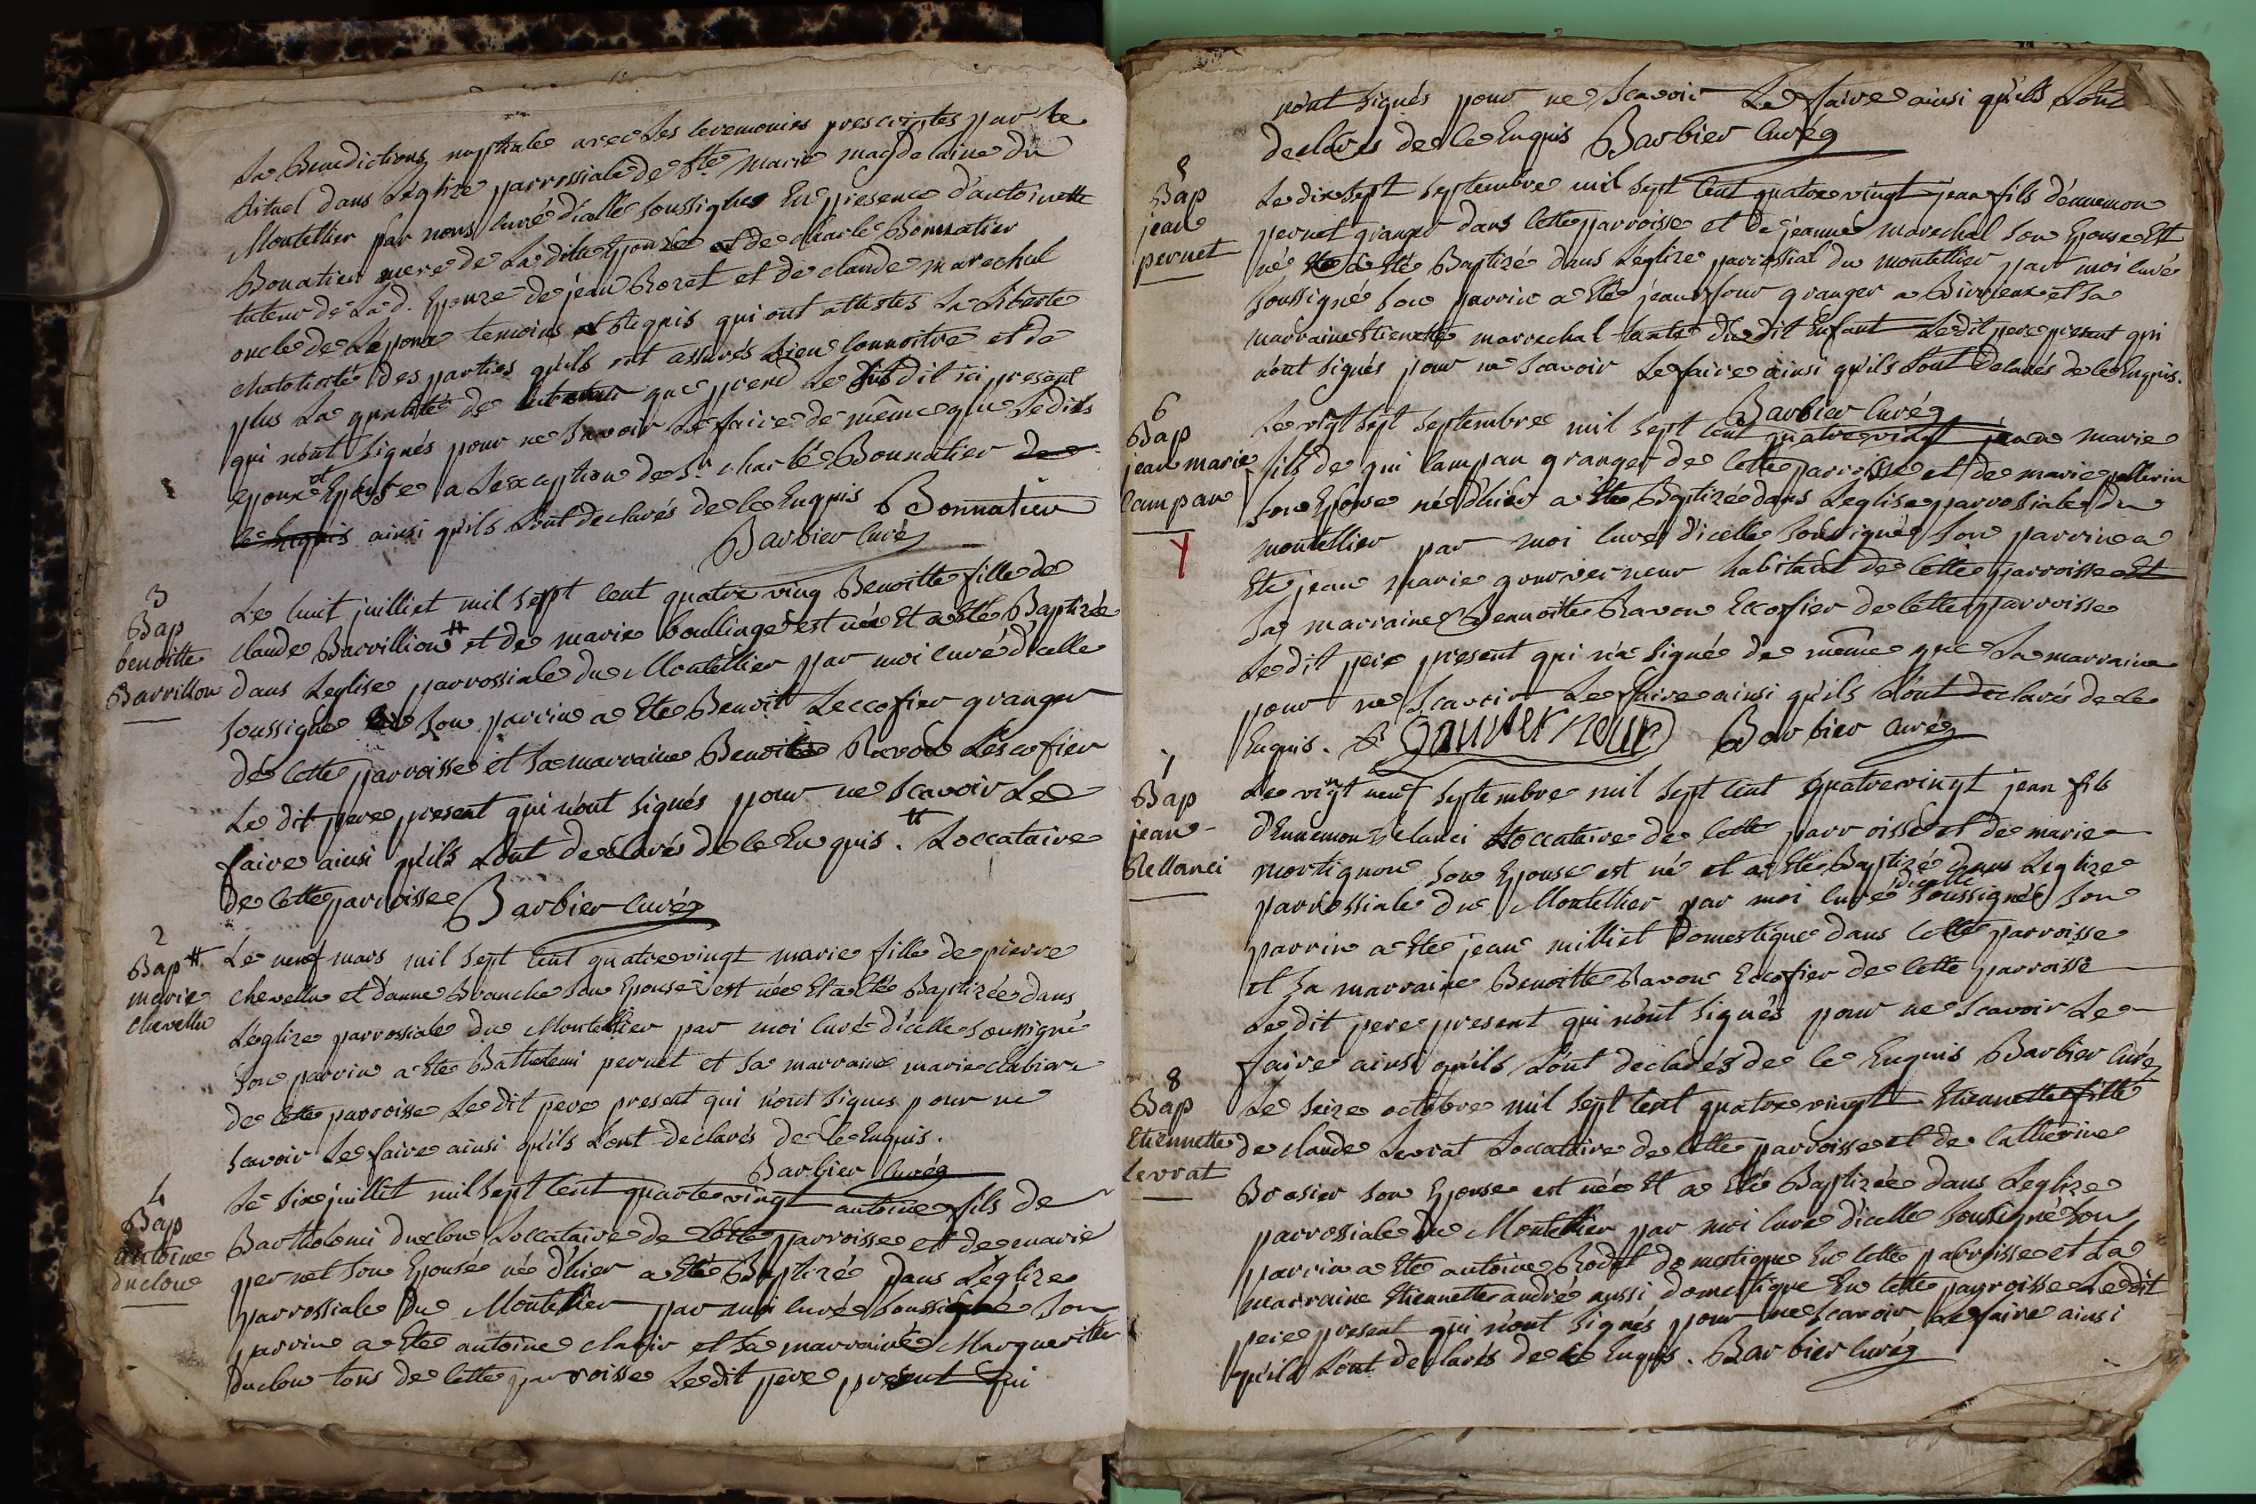 La Benediction nuptiale avec les ceremonies prescriptes par le
Rituel dans L'eglize parrossiale de Ste marie magdelaine du
Montellier par nous curé d'icelle soussignes En presence d'antoinette
Bonnatier mere de La ditte Epouze et de charle Bonnatier
tuteur de La d. Epouze de jean Rozet et de claude marechal
oncle de L'epoux temoins et Requis qui ont attestés La Liberté
chatolicité des parties qu'ils ont assurés bien Connoitre et de
plus La qualité de que prend Le susdit ici present
qui n'ont signés pour ne scavoir Le faire de même que Lesdits
epoux et Epouse a L'exception de Sr charle Bonnatier de
ce Enquis ainsi qu'ils L'ont declarés de ce Enquis Bonnatier
Barbier Curé
3
Bap
benoitte
Barrillon
Le huit juilliet mil sept cent quatre ving Benoitte fille de
claude Barrillion # et de marie boulinge est née Et a Eté Baptizée
dans L'eglise parrossiale du Montellier par moi curé d'icelle
soussigné son parrin a Ete Benoit Leccofier granger
de Cette parroisse et Sa marraine Benoitte Ravon L'escofier
Le dit pere present qui n'ont signés pour ne scavoir Le
faire ainsi qu'ils L'ont declarés de ce Enquis. # Loccataire
de Cette parroisse Barbier Curé
2
Bap #
marie
chevellu
Le neuf mars mil sept Cent quatrevingt marie fille de pierre
chevellu et d'anne Branche son Epouse est née Et a Eté Baptizée dans
L'eglize parrossiale du Montellier par moi Curé d'icelle soussigné
son parrin a Ete Batholemi pernet et sa marraine marie clabier
de Cette parroisse Le dit pere present qui n'ont signés pour ne
scavoir Le faire ainsi qu'ils L'ont declarés de Ce Enquis.
Barbier Curé
4
Bap
antoine
duclou
Le six juillet mil sept Cent quartevingt antoine fils de
Bartholemi duclou Loccataire de Cette parroisse et de marie
pernet son Epouse né d'hier a Eté Baptizé dans L'eglize
parrossiale du Montellier par moi curé soussigné son
parrin a Ete antoine clabir et sa marraine Margueritte
duclou tous de Cette parroisse Le dit pere present qui
n'ont signés pour ne scavoir Le faire ainsi qu'ils L'ont
declarés de Ce Enquis Barbier Curé
5
Bap
jean
pernet
Le dix sept septembre mil sept Cent quatre vingt jean fils d'ennemon
pernet granger dans Cette parroisse et de jeanne marechal son Epouse Est
né a Eté Baptizé dans L'eglize parrossial du montellier par moi Curé
soussigné son parrin a Eté jean granger a Birrieux et sa
marraine Etienette marrechal tante du dit Enfant Ledit pere present qui
n'ont signés pour ne scavoir Le faire ainsi qu'ils L'ont declarés de ce Enquis.
Barbier Curé
6
Bap
jean marie
campan
Y
Le vigt sept septembre mil sept Cent quatrevingt jean marie
fils de gui campan granger de Cette parroisse et de marie pellerin
son Epouse né d'hier a Ete Baptizé dans L'eglise parrossiale du
montellier par moi Curé d'icelle soussigné son parrin a
Ete jean marie gouvverneur habitant de Cette parroisse Et
sa marraine Bennoitte Ravon Eccofier de Cette parroisse
Le dit peire present qui n'a signé de même que La marraine
pour ne scavoir Le faire ainsi qu'ils L'ont declarés de ce
Enquis. Gouverneur Barbier Curé
7
Bap
jean
Rellanci
Le vigt neuf septembre mil sept Cent quatrevingt jean fils
d'Ennemon Relanci Loccataire de Cette parroisse et de marie
mortignon son Epouse est né et a Ete Baptizé dans L'eglize
parrossiale du Montellier par moi Curé d'icelle soussigné son
parrin a Ete jean milliet Domestique dans Cette parroisse
et sa marraine Benoitte Ravon Eccofier de Cette parroisse
Le dit pere present qui n'ont signés pour ne scavoir Le
faire ainsi qu'ils L'ont declarés de Ce Enquis Barbier Curé
8
Bap
Etiennette
Levrat
Le seize octobre mil sept Cent quatre vingt Etiennette fille
de claude Levrat Loccataire de Cette parroisse et de Catherine
Brosier son Epouse est née Et a Eté Baptizée dans L'eglize
parrossiale du Montellier par moi Curé d'icelle soussigné son
parrin a Ete antoine Rodet domestique En Cette parroisse et La
marraine Etiennette andré aussi domestique En Cette parroisse Ledit
peire present qui n'ont signés pour ne scavoir Le faire ainsi
qu'ils L'ont declarés de Ce Enquis. Barbier Curé